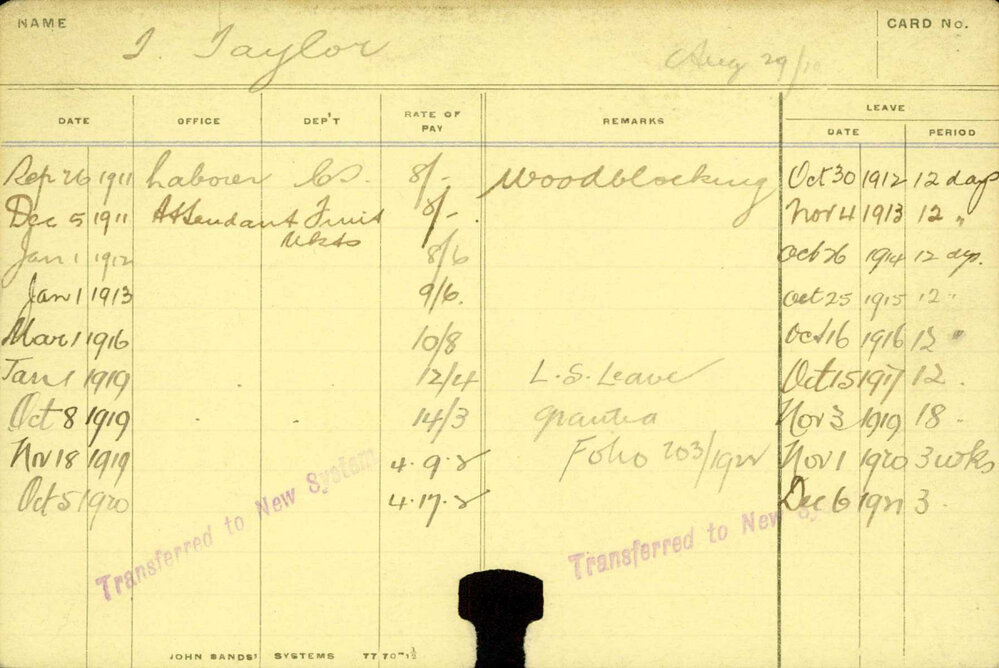 NAME T. Taylor Aug 29/10 CARD No.
DATE OFFICE DEP'T RATE OF PAY REMARKS LEAVE
DATE PERIOD
Sep 26 1911 Laborer CS. 8/- Woodblocking Oct 30 1912 12 days
Dec 5 1911 Attendant Fruit Mkts 8/- Nov 4 1913 12 "
Jan 1 1912 8/6 Oct 26 1914 12 dys.
Jan 1 1913 9/6. Oct 25 1915 12 "
Mar 1 1916 10/8 Oct 16 1916 12 "
Jan 1 1919 12/4 L.S. Leave Oct 15 1917 12 .
Oct 8 1919 14/3 granted Nov 3 1919 18 .
Nov 18 1919 4.9.2 Folio 203/1922 Nov 1 1920 3 wks
Oct 5 1920 4.17.2 Dec 6 1921 3 .
Transferred to New System
Transferred to New Sy
JOHN SANDS' SYSTEMS 77707-1½